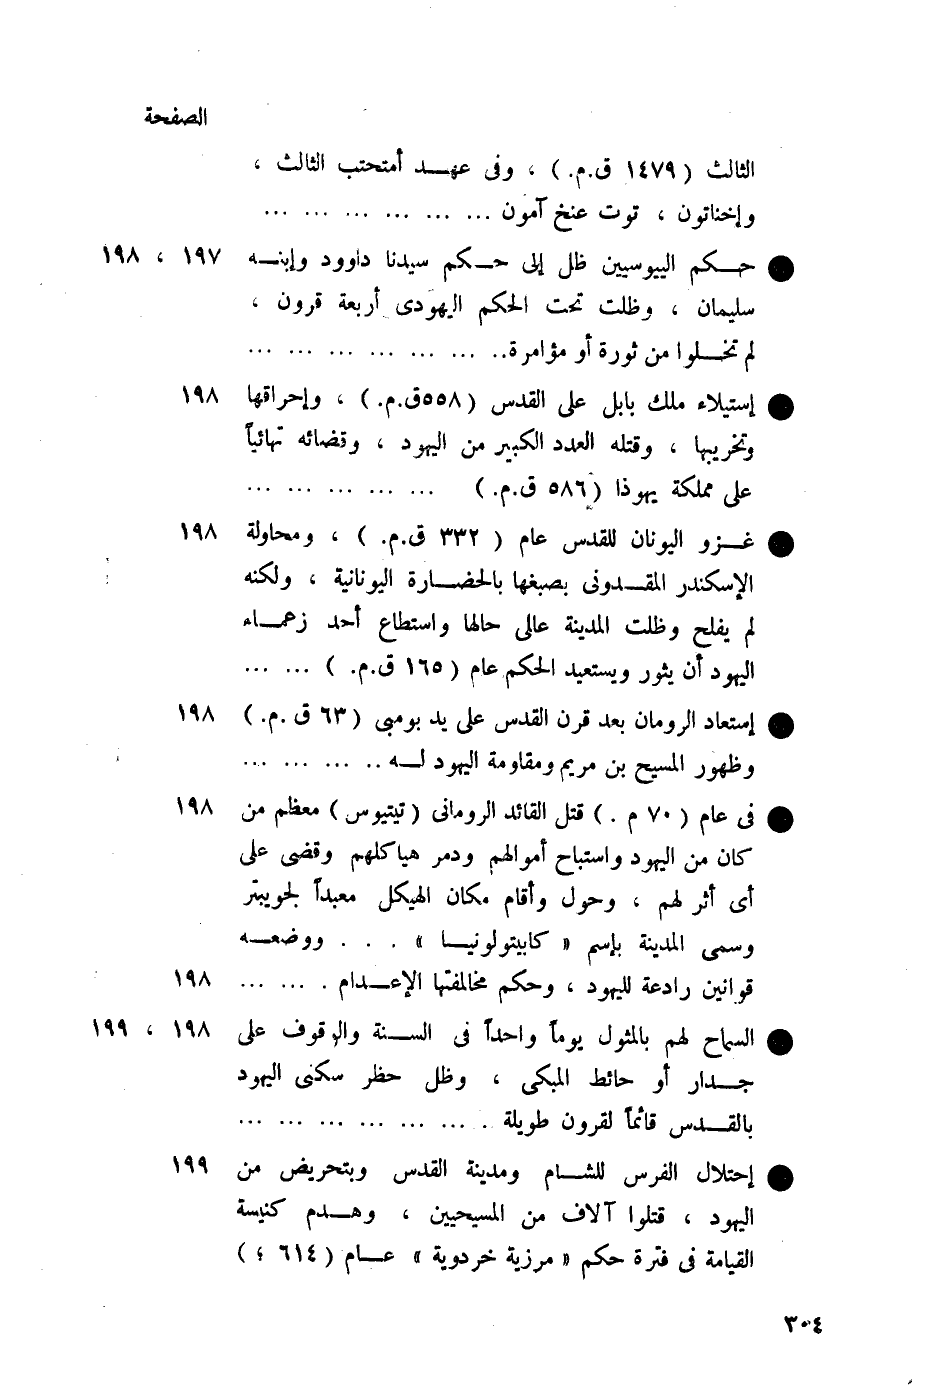 الصفحة
الثالث ( ١٤٧٩ ق.م. ) ، وفى عهد أمتحتب الثالث ،
وإخناتون ، توت عنخ آمون ... ... ... ... ... ...
● حكم اليبوسيين ظل إلى حكم سيدنا داوود وإبنه ١٩٧ ، ١٩٨
سليمان ، وظلت تحت الحكم اليهودى أربعة قرون ،
لم تخلوا من ثورة أو مؤامرة.. ... ... ... ... ... ...
● إستيلاء ملك بابل على القدس ( ٥٥٨ق.م. ) ، وإحراقها ١٩٨
وتخريبها ، وقتله العدد الكبير من اليهود ، وقضائه نهائياً
على مملكة يهوذا ( ٥٨٦ ق.م. ) ... ... ... ... ...
● غزو اليونان للقدس عام ( ٣٣٢ ق.م. ) ، ومحاولة ١٩٨
الإسكندر المقدونى بصبغها بالحضارة اليونانية ، ولكنه
لم يفلح وظلت المدينة عالى حالها واستطاع أحد زعماء
اليهود أن يثور ويستعيد الحكم عام ( ١٦٥ ق.م. ) ... ...
● إستعاد الرومان بعد قرن القدس على يد بومبى ( ٦٣ ق .م. ) ١٩٨
وظهور المسيح بن مريم ومقاومة اليهود له .. ... ... ...
● فى عام ( ٧٠ م . ) قتل القائد الرومانى ( تيتيوس ) معظم من ١٩٨
كان من اليهود واستباح أموالهم ودمر هياكلهم وقضى على
أى أثر لهم ، وحول وأقام مكان الهيكل معبداً لجويبتر
وسمى المدينة بإسم « كابيتولونيا » . . . ووضعه
قوانين رادعة لليهود ، وحكم مخالفتها الإعدام . ... ... ١٩٨
● السماح لهم بالمثول يوماً واحداً فى السنة والوقوف على ١٩٨ ، ١٩٩
جدار أو حائط المبكى ، وظل حظر سكنى اليهود
بالقدس قائماً لقرون طويلة .. ... ... ... ... ... ...
● إحتلال الفرس للشام ومدينة القدس وبتحريض من ١٩٩
اليهود ، قتلوا آلاف من المسيحيين ، وهدم كنيسة
القيامة فى فترة حكم « مرزية خردوية » عام ( ٦١٤ ؛ )
٣٠٤